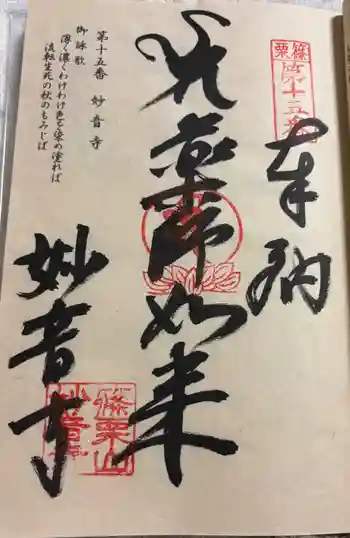 篠栗
第十五番
奉納
薬師如来
第十五番 妙音寺
御詠歌
薄く濃くわけわけ色を染め塗れば
流転生死の秋のもみじば
妙音寺
篠栗山
妙音寺